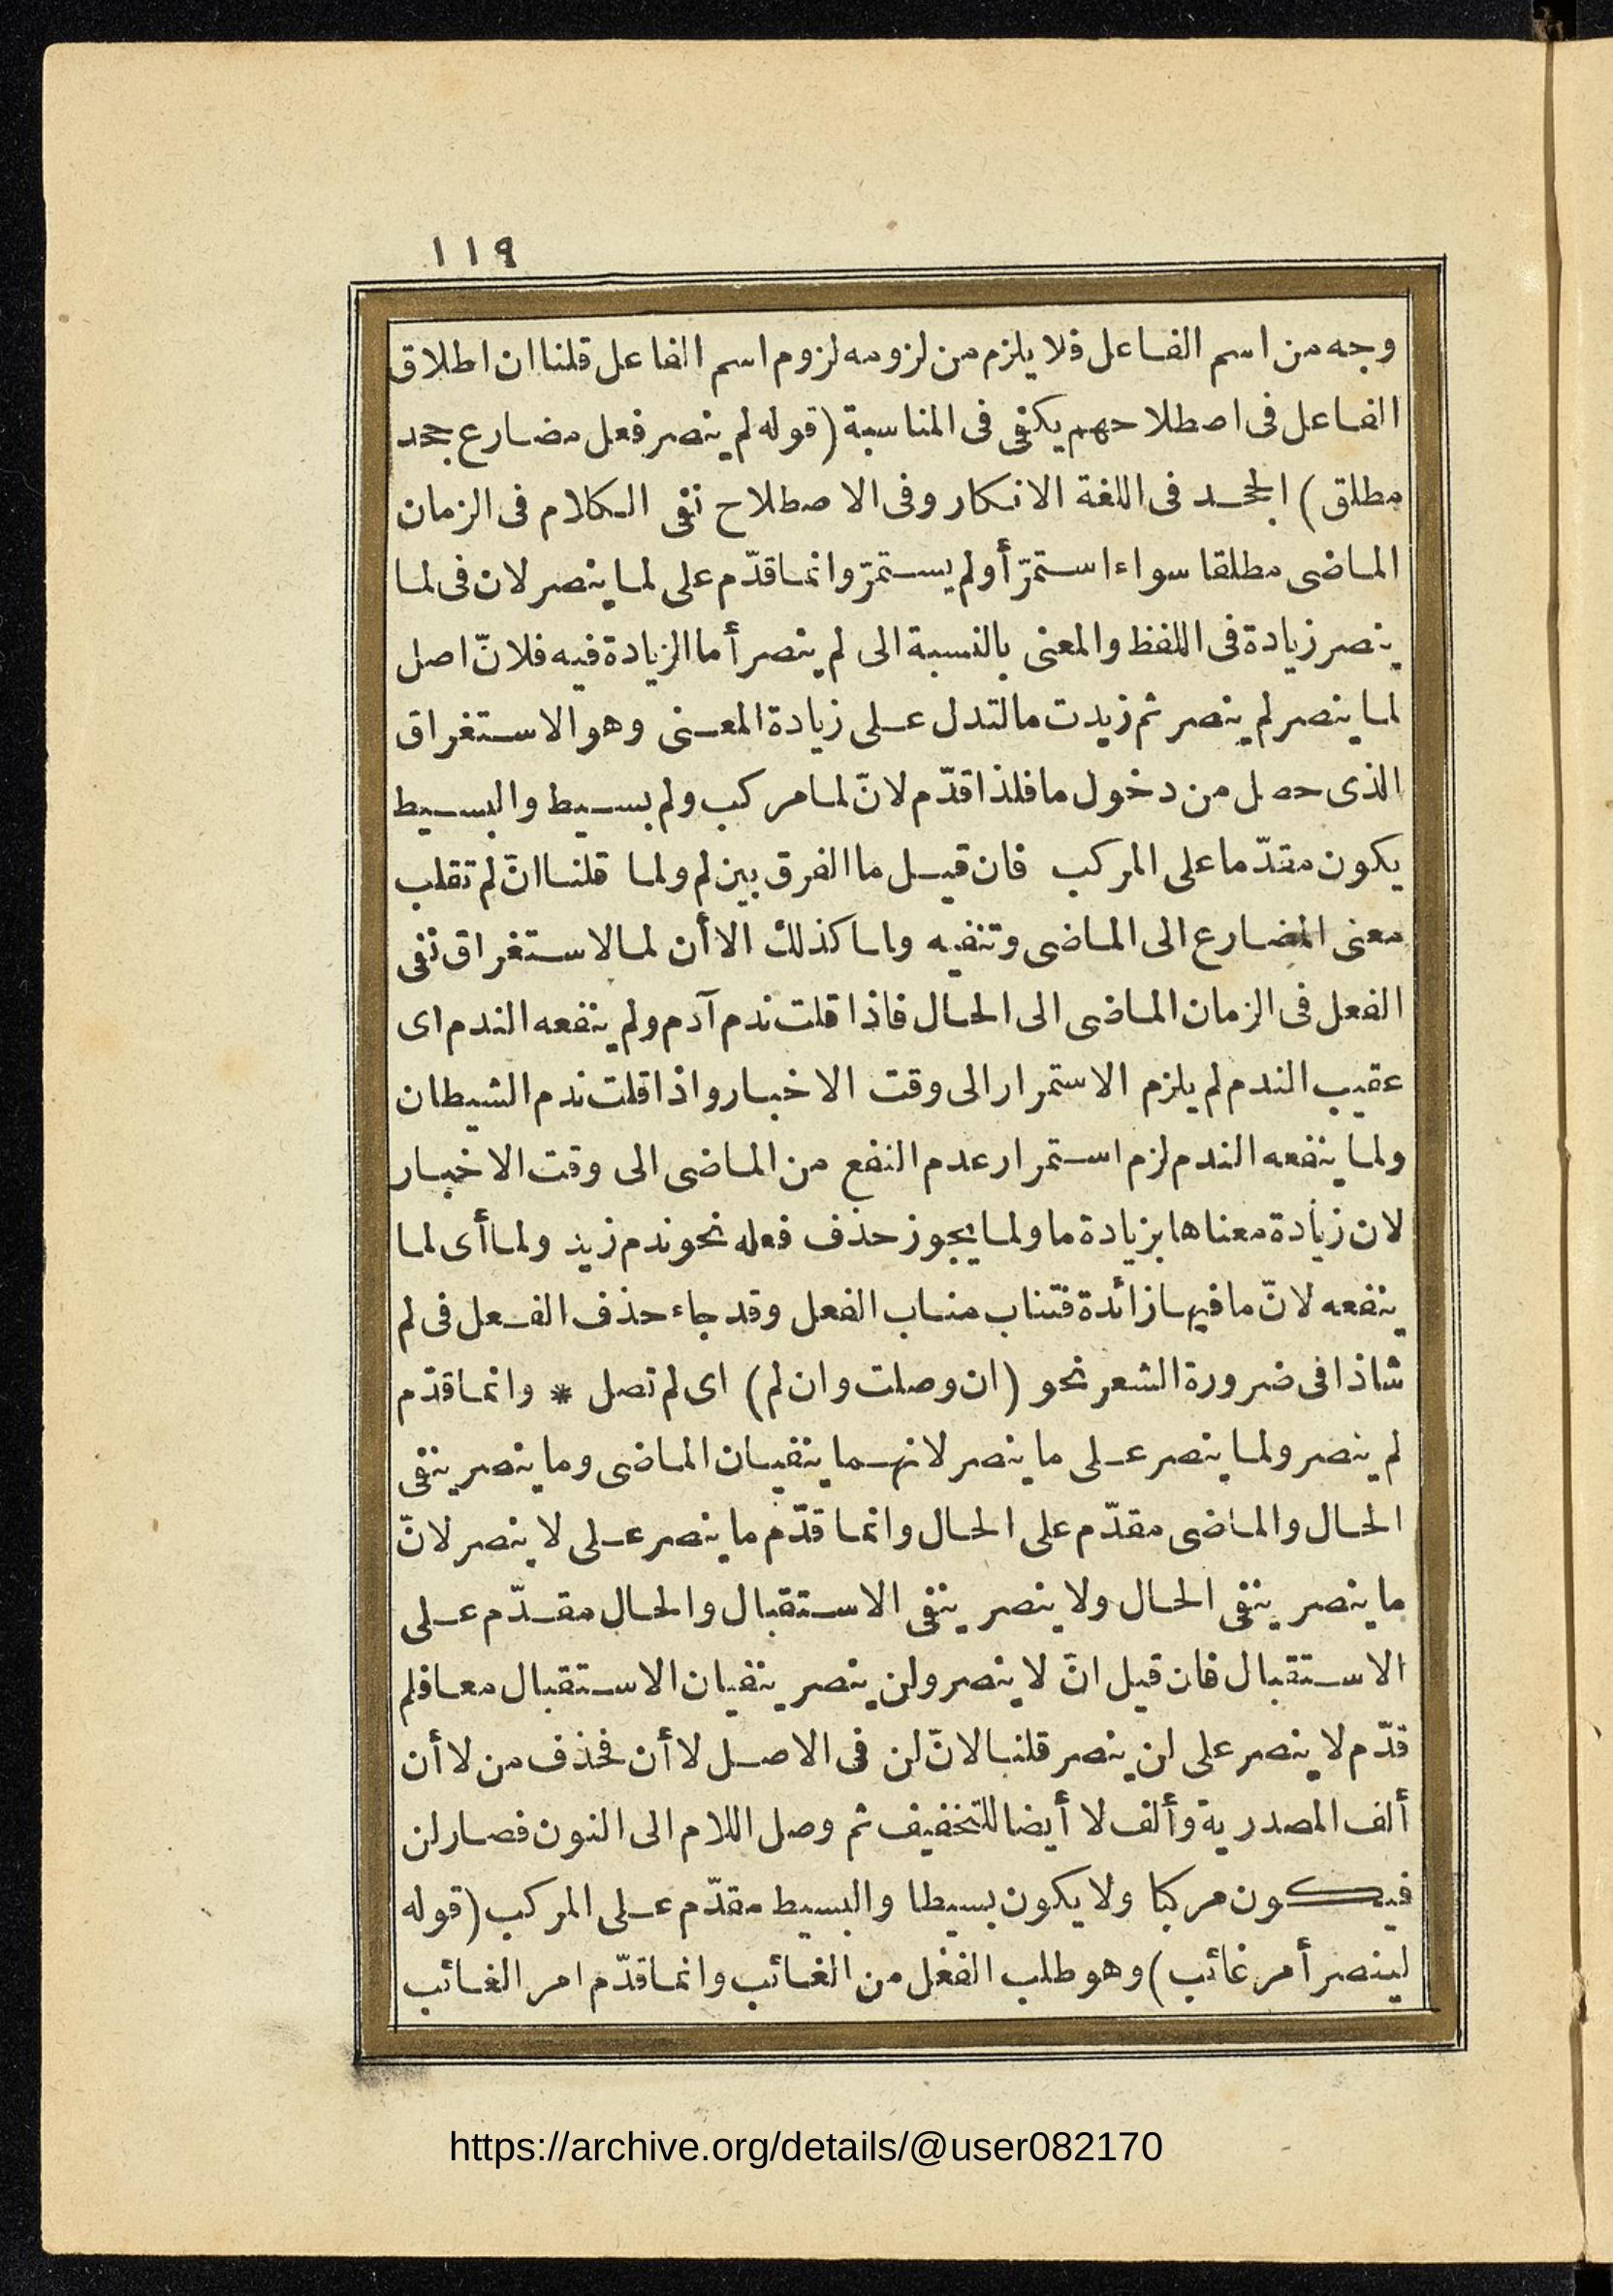 ١١٩
وجه من اسم الفاعل فلا يلزم من لزومه لزوم اسم الفاعل قلنا ان اطلاق
الفاعل فى اصطلاحهم يكفى فى المناسبة (قوله لم ينصر فعل مضارع جحد
مطلق) الجحد فى اللغة الانكار وفى الاصطلاح نفى الكلام فى الزمان
الماضى مطلقا سواء استمرّ أولم يستمرّ وانما قدّم على لما ينصر لان فى لما
ينصر زيادة فى اللفظ والمعنى بالنسبة الى لم ينصر أما الزيادة فيه فلانّ اصل
لما ينصر لم ينصر ثم زيدت ما لتدل على زيادة المعنى وهو الاستغراق
الذى حصل من دخول ما فلذا قدّم لانّ لما مركب ولم بسيط والبسيط
يكون مقدّما على المركب فان قيل ما الفرق بين لم ولما قلنا انّ لم تقلب
معنى المضارع الى الماضى وتنفيه ولما كذلك الا أن لما لاستغراق نفى
الفعل فى الزمان الماضى الى الحال فاذا قلت ندم آدم ولم ينفعه الندم اى
عقيب الندم لم يلزم الاستمرار الى وقت الاخبار واذا قلت ندم الشيطان
ولما ينفعه الندم لزم استمرار عدم النفع من الماضى الى وقت الاخبار
لان زيادة معناها بزيادة ما ولما يجوز حذف فعله نحو ندم زيد ولما أى لما
ينفعه لانّ ما فيها زائدة فتناب مناب الفعل وقد جاء حذف الفعل فى لم
شاذا فى ضرورة الشعر نحو (ان وصلت وان لم) اى لم تصل * وانما قدّم
لم ينصر ولما ينصر على ما ينصر لانهما ينفيان الماضى وما ينصر ينفى
الحال والماضى مقدّم على الحال وانما قدّم ما ينصر على لا ينصر لانّ
ما ينصر ينفى الحال ولا ينصر ينفى الاستقبال والحال مقدّم على
الاستقبال فان قيل انّ لا ينصر ولن ينصر ينفيان الاستقبال معا فلم
قدّم لا ينصر على لن ينصر قلنا لانّ لن فى الاصل لا أن فحذف من لا أن
ألف المصدرية وألف لا أيضا للتخفيف ثم وصل اللام الى النون فصار لن
فيكون مركبا ولا يكون بسيطا والبسيط مقدّم على المركب (قوله
لينصر أمر غائب) وهو طلب الفعل من الغائب وانما قدّم امر الغائب
https://archive.org/details/@user082170